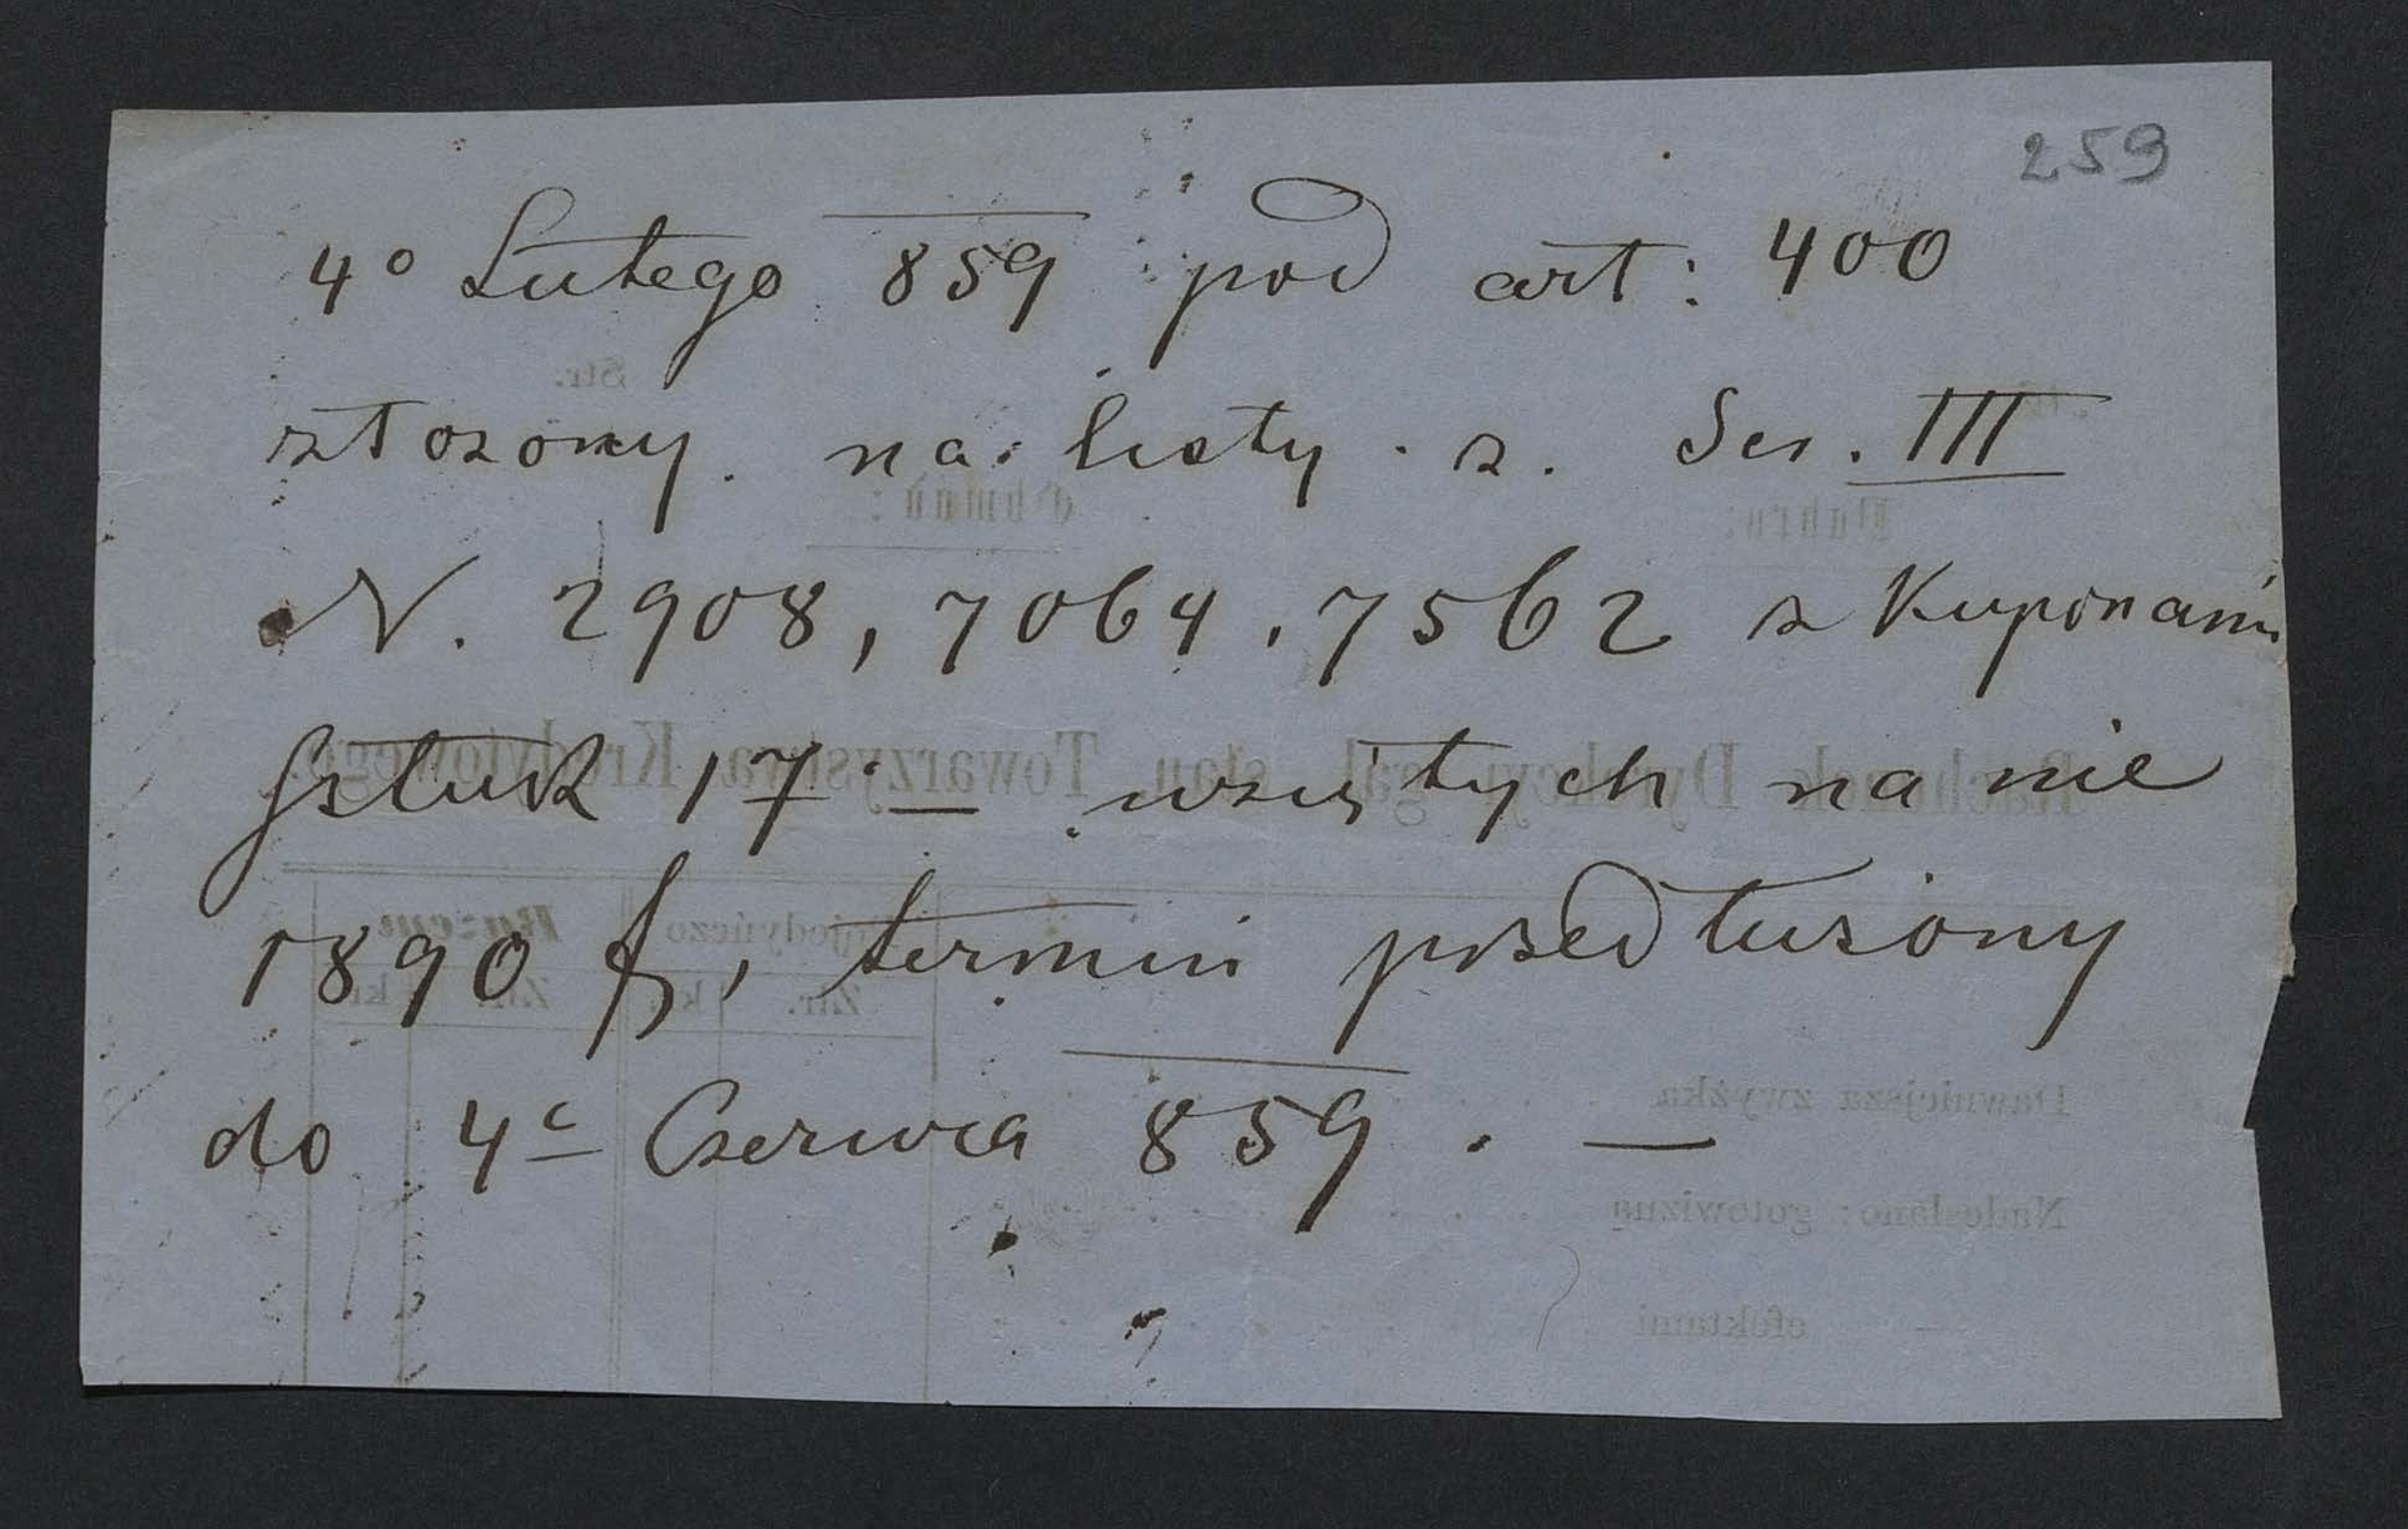 259
4º Lutego 859 pod art: 400
złozony. na listy. z. Ser. III
N. 2908, 7064, 7562 z Kuponami
sztuk 17. — wziętych na nie
1890 f, termin przedłużony
do 4º Czerwca 859. —